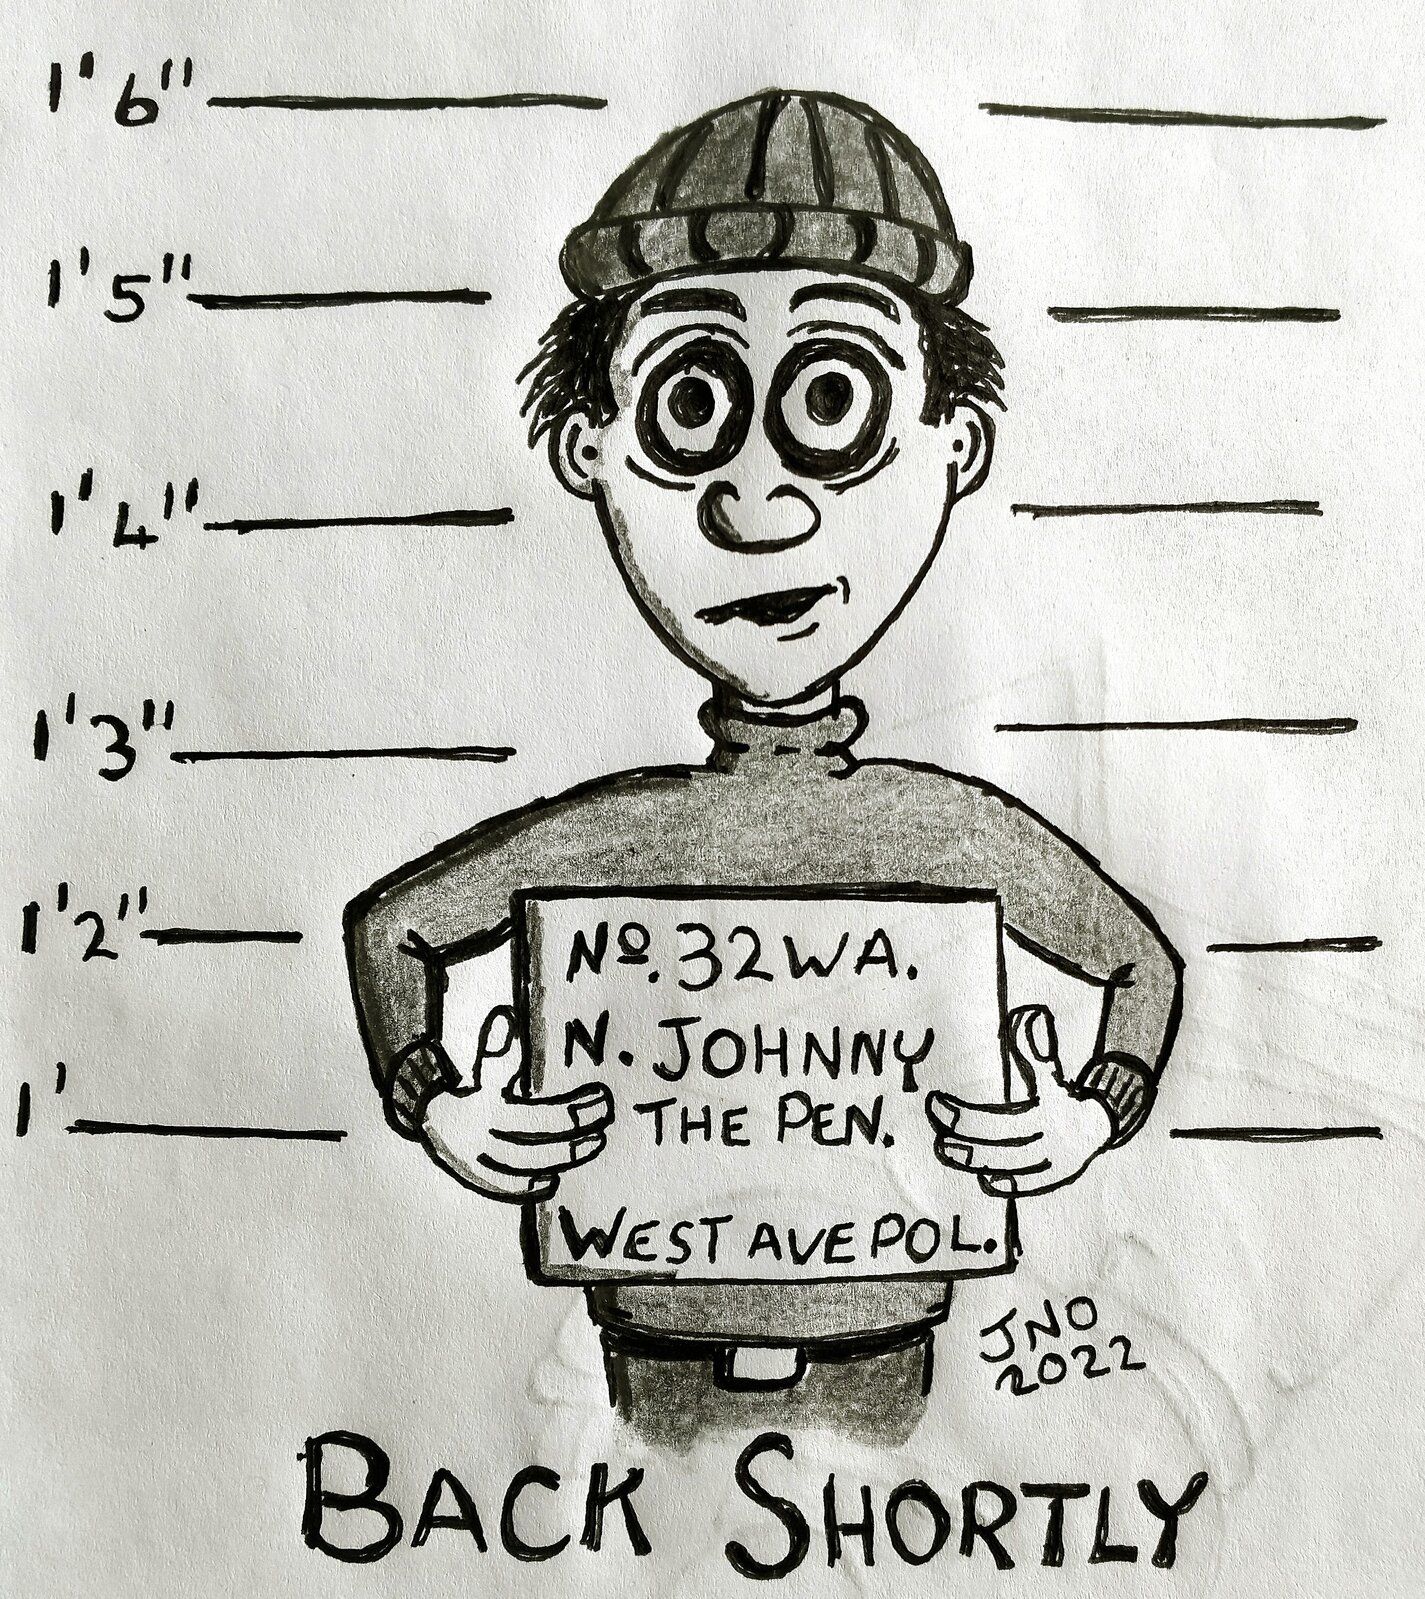 1' 6"
1' 5"
1' 4"
1' 3"
1' 2"
1'
Nº. 32WA.
N. JOHNNY
THE PEN.
WEST AVE POL.
JNO
2022
BACK SHORTLY